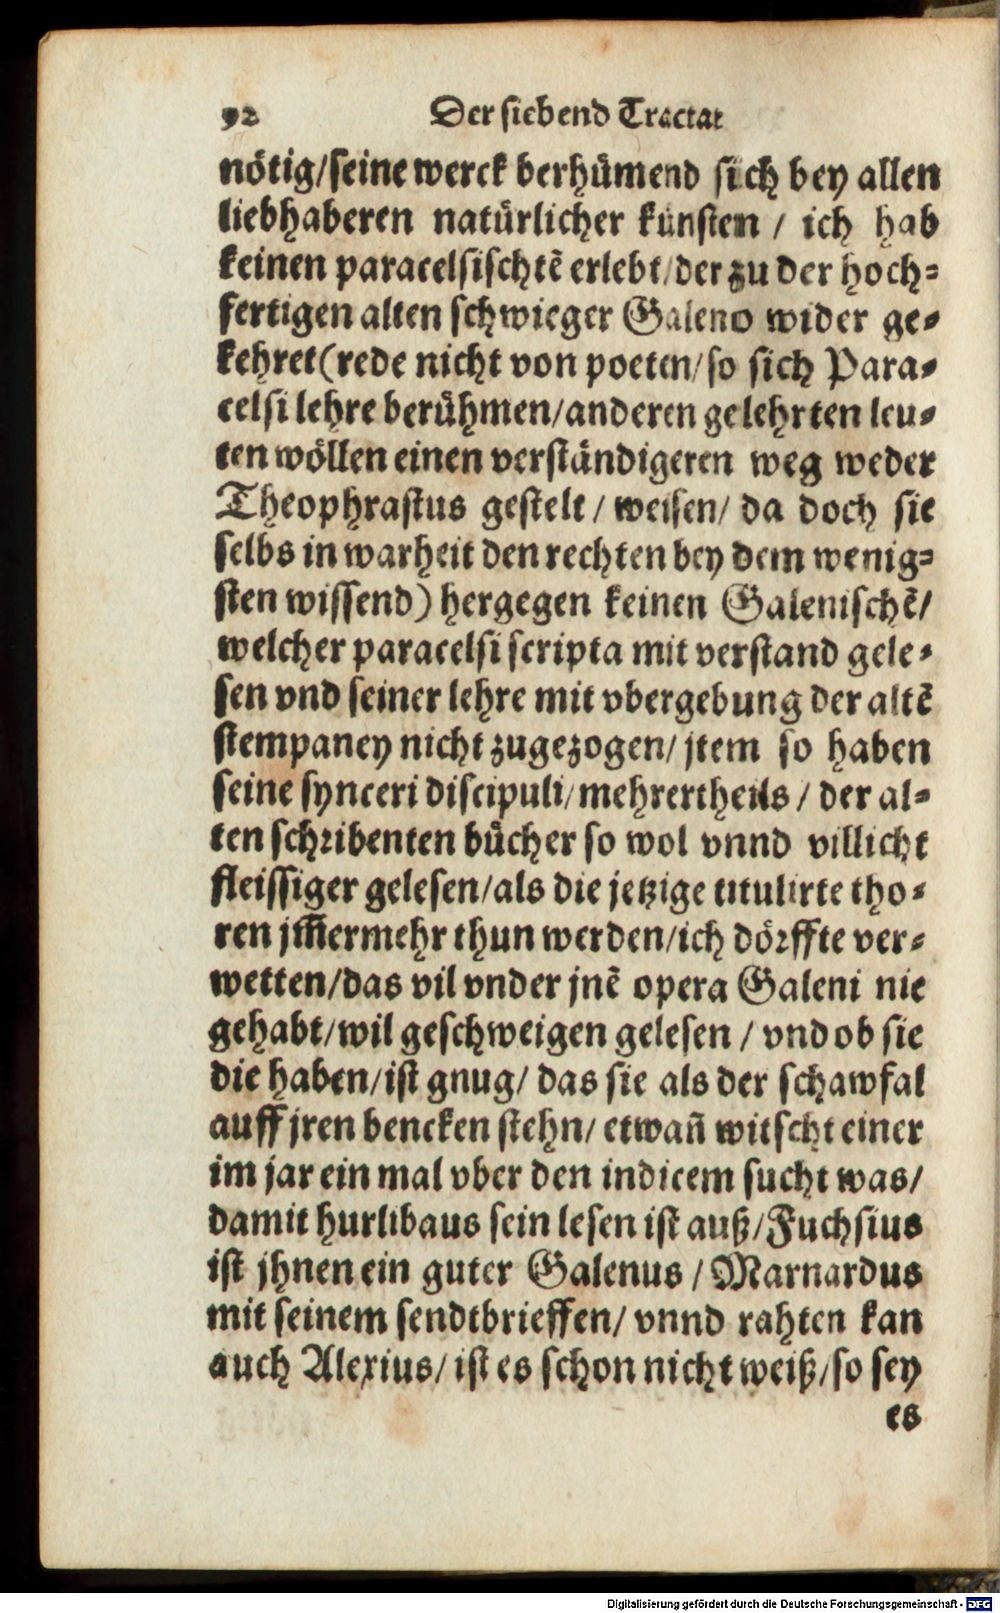 92 Der siebend Tractat
nötig/seine werck berhümend sich bey allen
liebhaberen natürlicher künsten / ich hab
keinen paracelsischtẽ erlebt/der zu der hoch=
fertigen alten schwieger Galeno wider ge=
kehret(rede nicht von poeten/so sich Para=
celsi lehre berühmen/anderen gelehrten leu=
ten wöllen einen verständigeren weg weder
Theophrastus gestelt / weisen/ da doch sie
selbs in warheit den rechten bey dem wenig=
sten wissend) hergegen keinen Galenischẽ/
welcher paracelsi scripta mit verstand gele=
sen vnd seiner lehre mit vbergebung der altẽ
stempaney nicht zugezogen/ jtem so haben
seine synceri discipuli/mehrertheils / der al=
ten schribenten bücher so wol vnnd villicht
fleissiger gelesen/als die jetzige titulirte tho=
ren jm̃ermehr thun werden/ich dörffte ver=
wetten/das vil vnder jnẽ opera Galeni nie
gehabt/wil geschweigen gelesen / vnd ob sie
die haben/ist gnug/ das sie als der schawfal
auff jren bencken stehn/ etwañ witscht einer
im jar ein mal vber den indicem sucht was/
damit hurlibaus sein lesen ist auß/Fuchsius
ist jhnen ein guter Galenus / Marnardus
mit seinem sendtbrieffen/ vnnd rahten kan
auch Alexius/ ist es schon nicht weiß/so sey
es
Digitalisierung gefördert durch die Deutsche Forschungsgemeinschaft - DFG